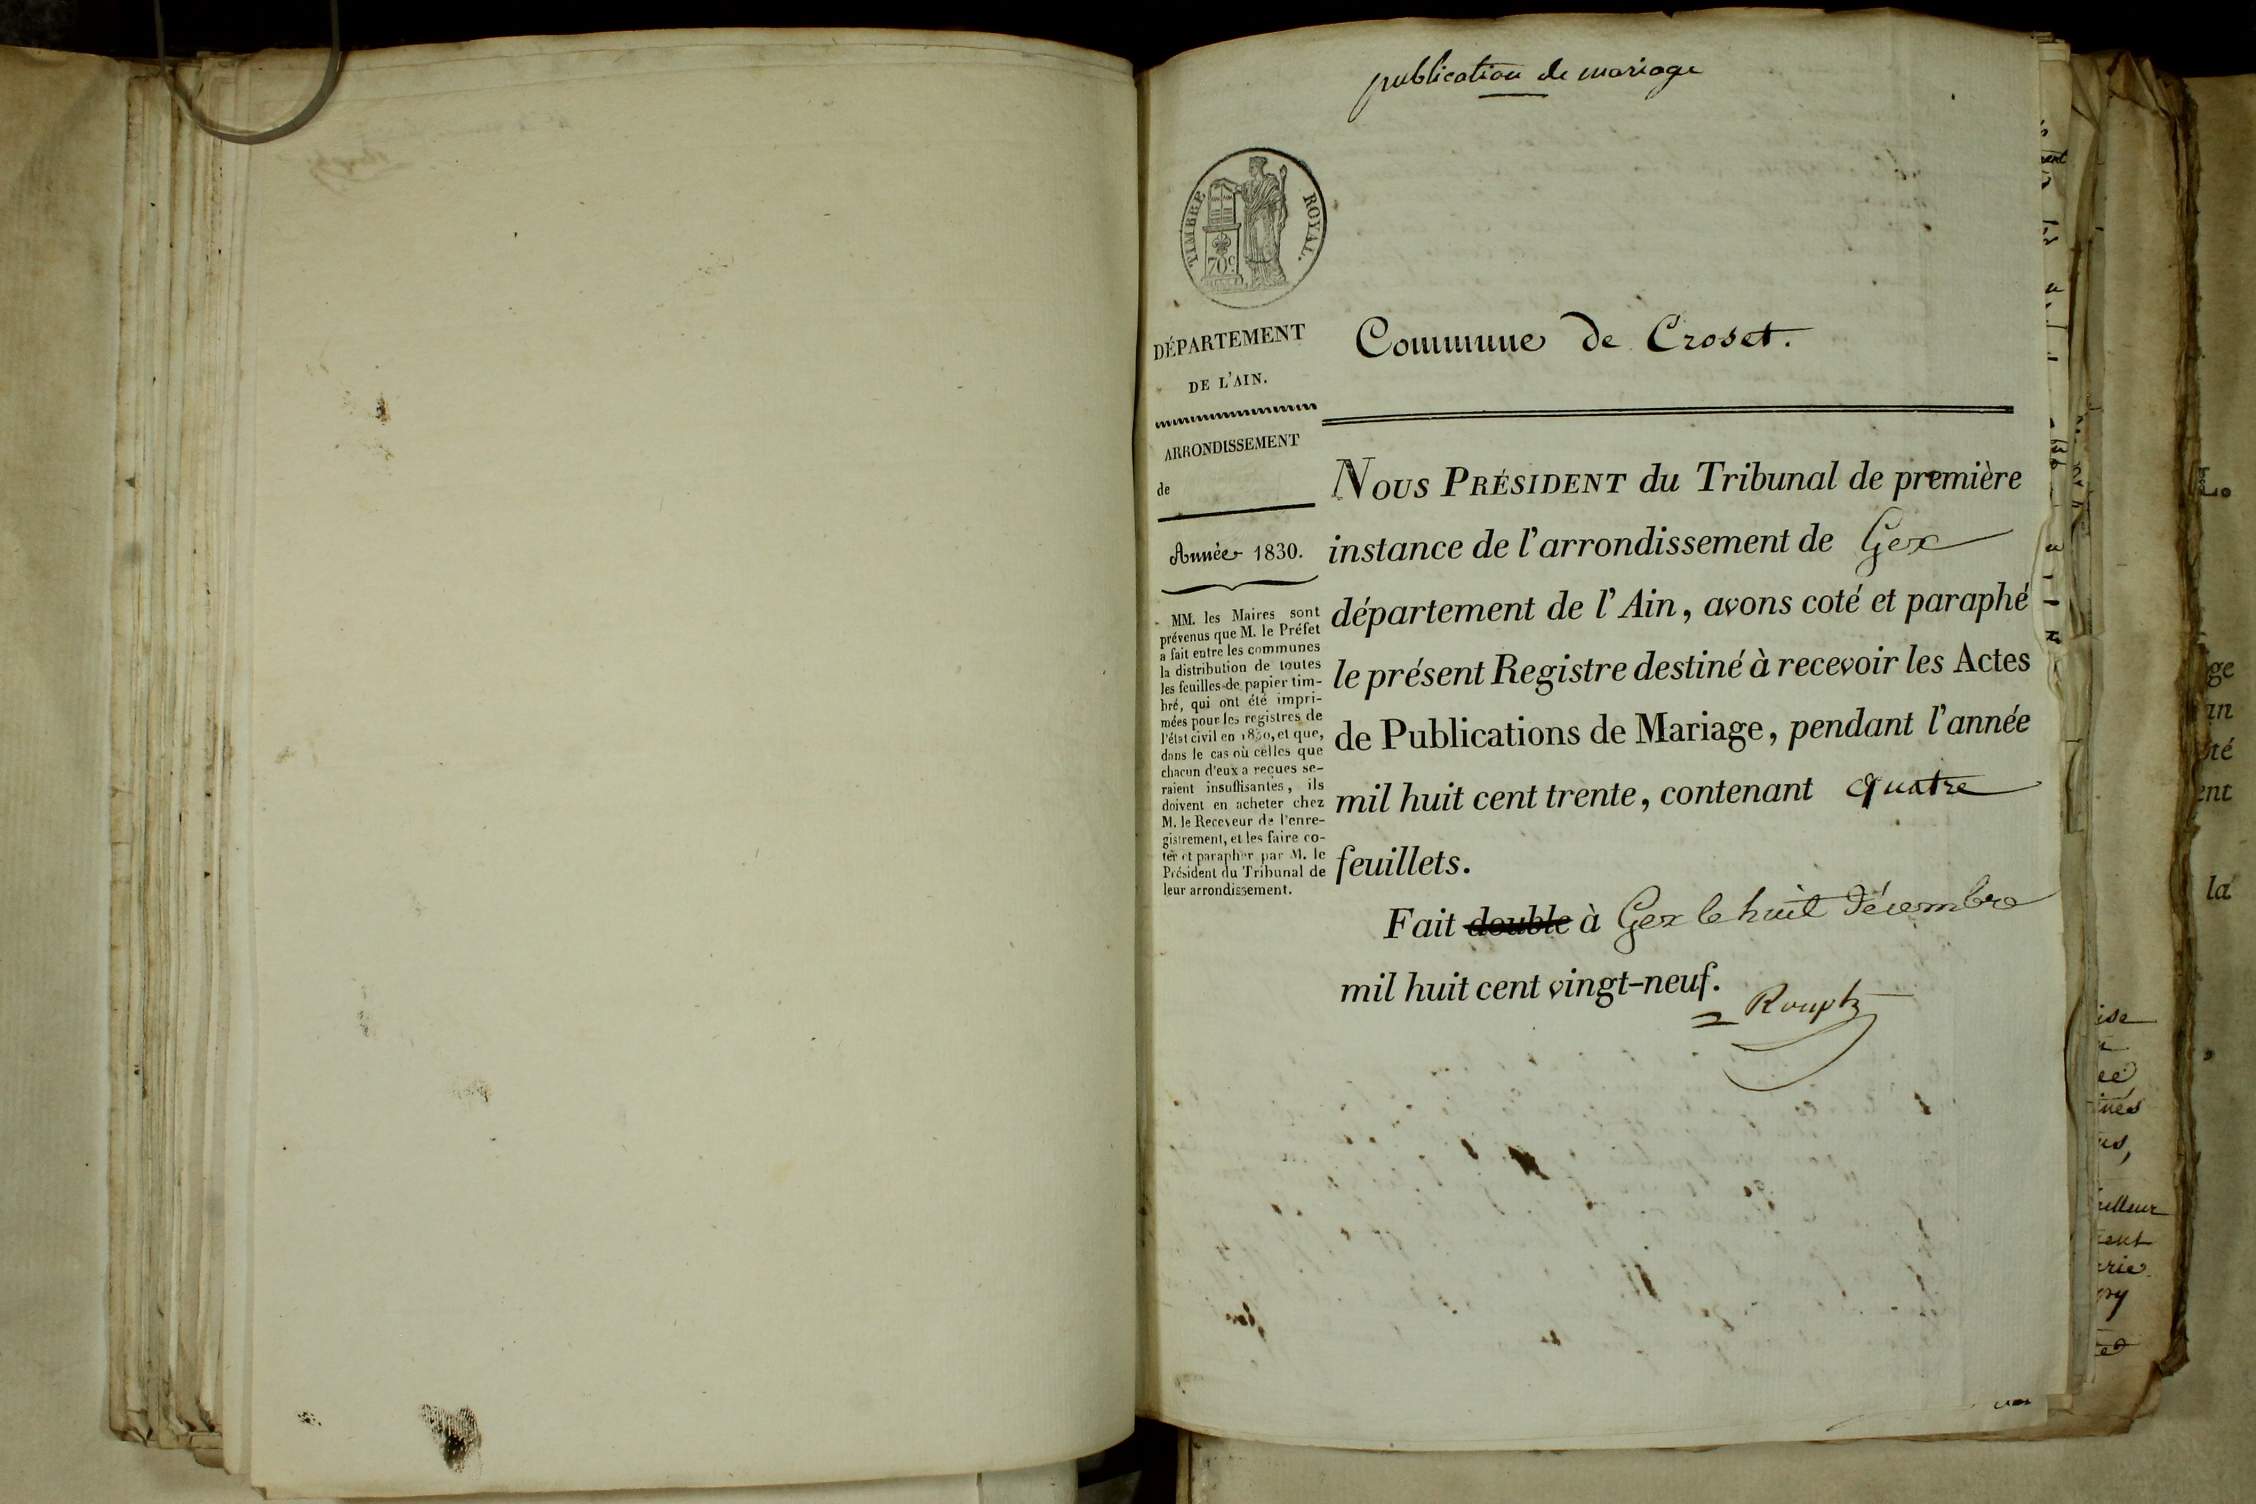 publication de mariage
TIMBRE ROYAL.
70c
DÉPARTEMENT
DE L'AIN.
ARRONDISSEMENT
de
Année 1830.
MM. les Maires sont
prévenus que M. le Préfet
a fait entre les communes
la distribution de toutes
les feuilles de papier tim-
bré, qui ont été impri-
mées pour les registres de
l'état civil en 1830, et que,
dans le cas où celles que
chacun d'eux a reçues se-
raient insuffisantes, ils
doivent en acheter chez
M. le Receveur de l'enre-
gistrement, et les faire co-
ter et parapher par M. le
Président du Tribunal de
leur arrondissement.
Commune de Croset.
NOUS PRÉSIDENT du Tribunal de première
instance de l'arrondissement de Gex
département de l'Ain, avons coté et paraphé
le présent Registre destiné à recevoir les Actes
de Publications de Mariage, pendant l'année
mil huit cent trente, contenant quatre
feuillets.
Fait double à Gex le huit Décembre
mil huit cent vingt-neuf.